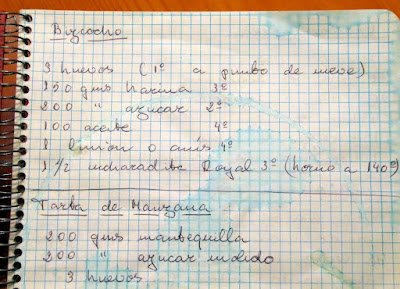 Bizcocho
3 huevos (1º a punto de nieve)
150 gms harina 3º
200 " azucar 2º
100 aceite 4º
1 limón o anís 4º
1 1/2 cucharadita Royal 3º (horno a 140º)
Tarta de Manzana
200 gms mantequilla
200 " azucar molido
3 huevos